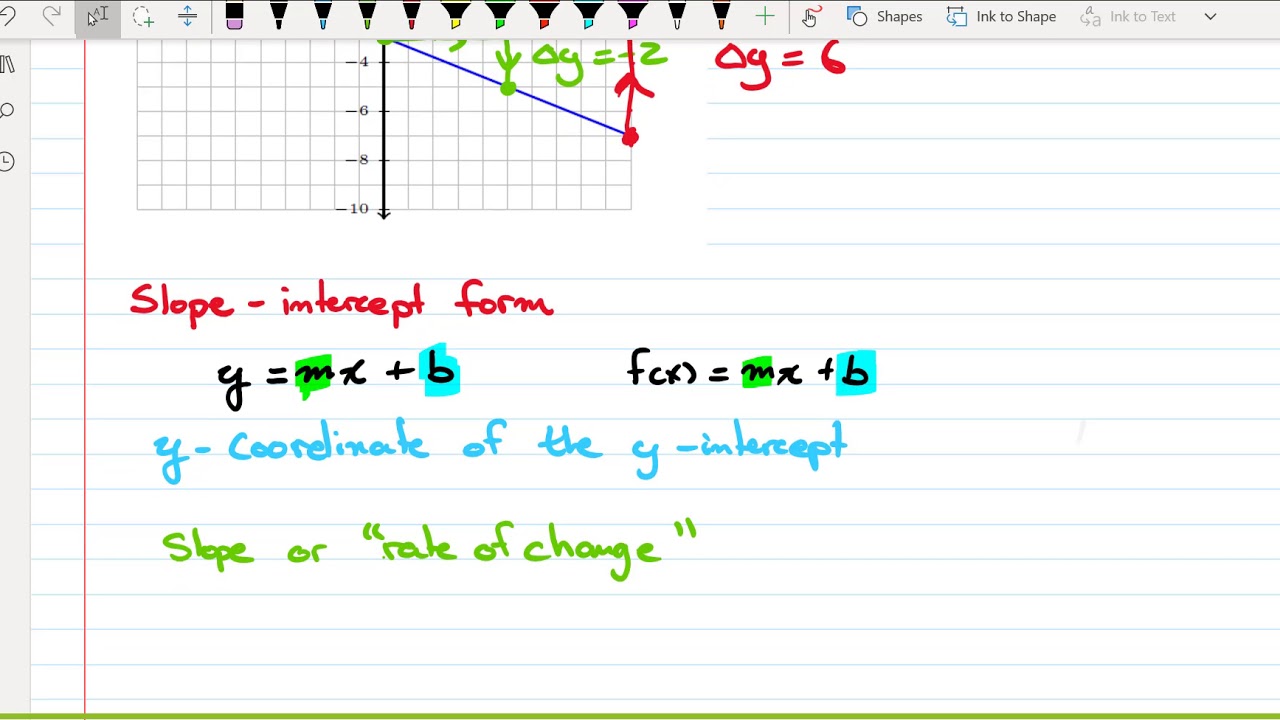 Shapes Ink to Shape Ink to Text
−4 Δy = -2 Δy = 6
−6
−8
−10
Slope - intercept form
y = mx + b f(x) = mx + b
y - coordinate of the y - intercept
Slope or "rate of change"